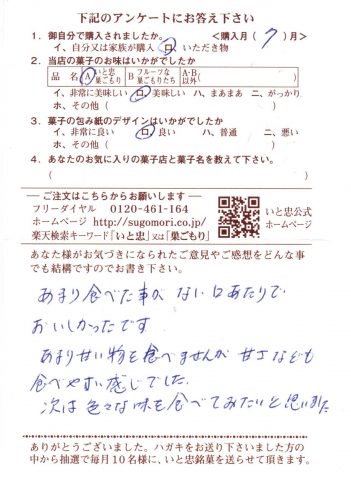 下記のアンケートにお答え下さい
1. 御自分で購入されましたか。 <購入月( 7 )月>
イ、自分又は家族が購入 ロ、いただき物
2. 当店の菓子のお味はいかがでしたか
品 名 A いと忠巣ごもり B フルーツな巣ごもりたち A・B以外
イ、非常に美味しい ロ、美味しい ハ、まあまあ ニ、がっかり
ホ、その他( )
3. 菓子の包み紙のデザインはいかがでしたか
イ、非常に良い ロ、良い ハ、普通 ニ、悪い
ホ、その他( )
4. あなたのお気に入りの菓子店と菓子名を教えて下さい。
( )
―ご注文はこちらからお願いします―
フリーダイヤル 0120-461-164
ホームページ http://sugomori.co.jp/
楽天検索キーワード「いと忠」又は「巣ごもり」
いと忠公式
ホームページ
あなた様がお気づきになられたご意見やご感想をどんな事
でも結構ですのでお書き下さい。
あまり食べた事が ない口あたりで
おいしかったです
あまり甘い物を食べませんが 甘さなども
食べやすい感じでした。
次は色々な味も食べてみたいと思いました
ありがとうございました。ハガキをお送り下さいました方の
中から抽選で毎月10名様に、いと忠銘菓を送らせて頂きます。